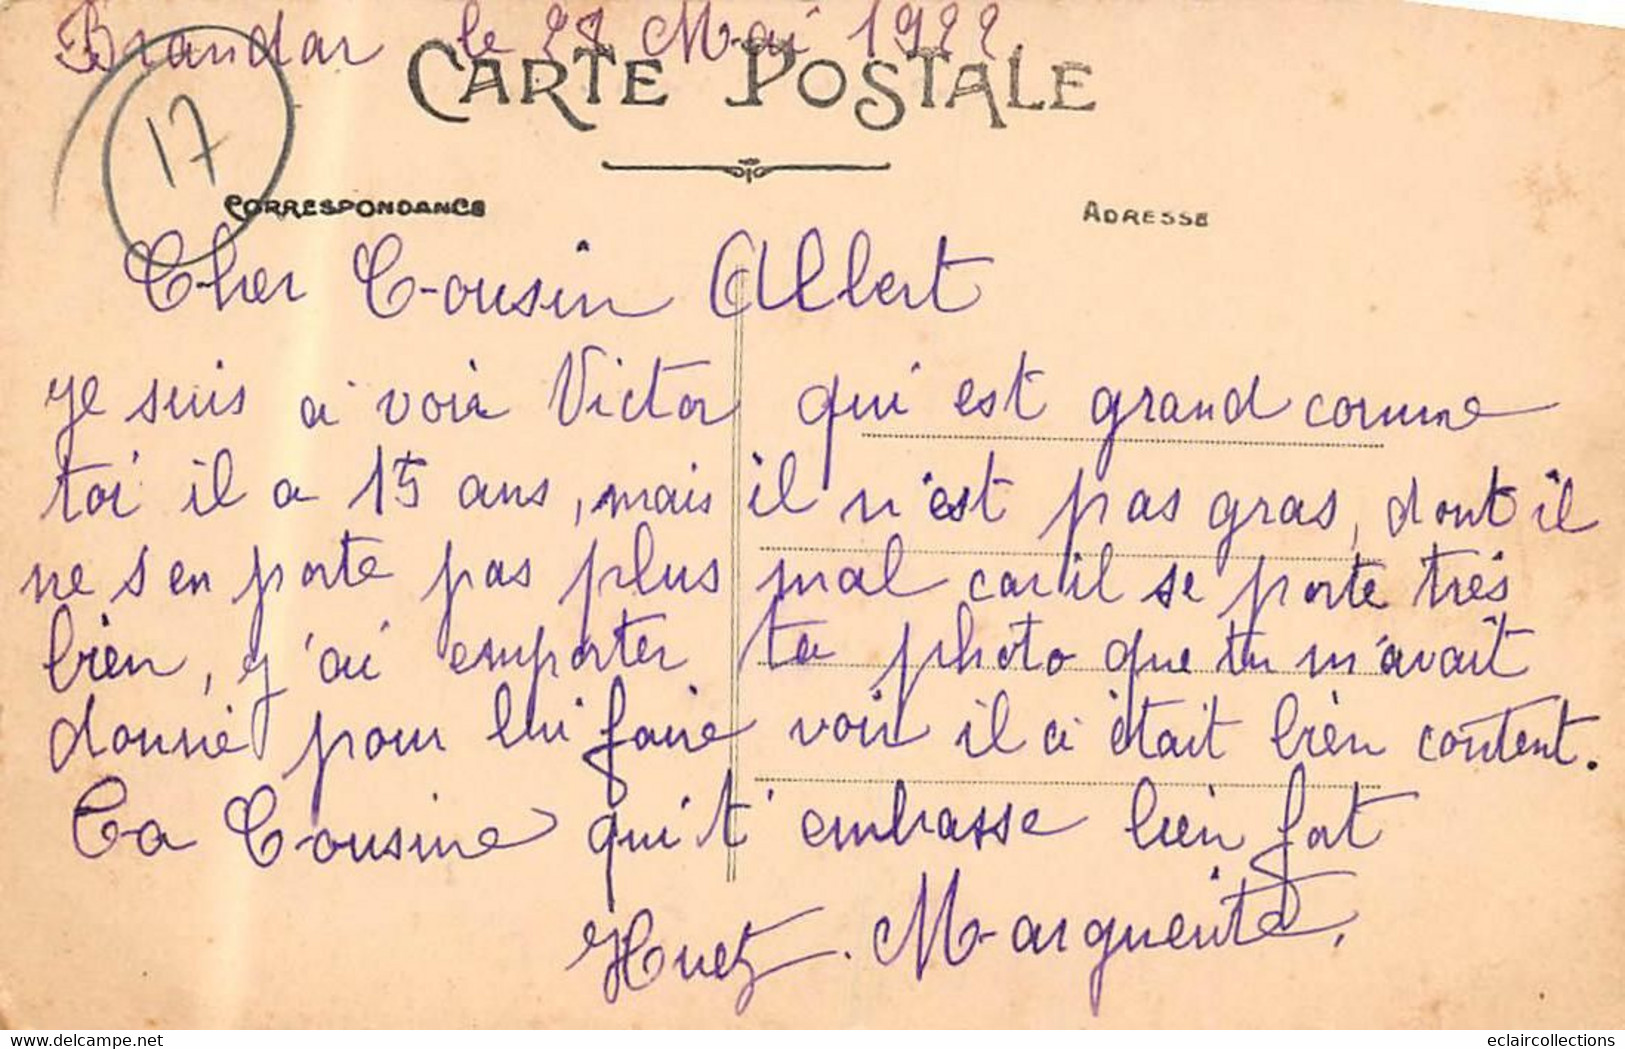 Brandar le 28 Mai 1922
CARTE POSTALE
17
CORRESPONDANCE
ADRESSE
Cher Cousin Albert
Je suis a voir Victor qui est grand comme
toi il a 15 ans, mais il n'est pas gras, dont il
ne s'en porte pas plus mal car il se porte très
bien, j'ai emporter ta photo que tu m'avait
donné pour lui faire voir il a était bien content.
Ta Cousine qui t'embrasse bien fort
Huet. Marguerite.
eclaircollections